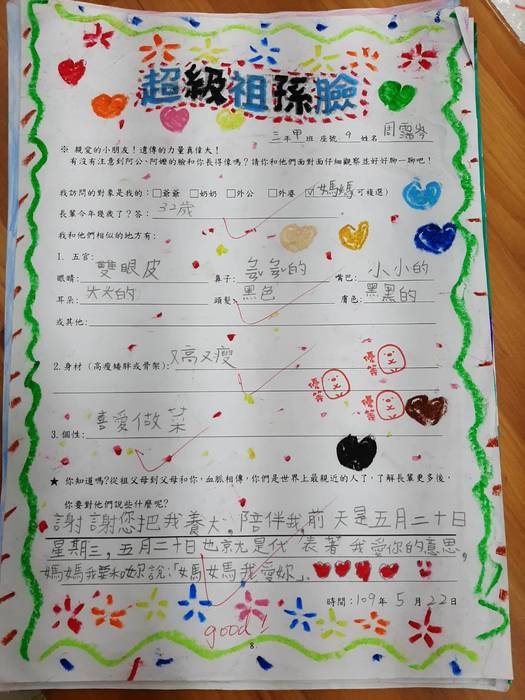 超級祖孫臉
三年甲班 座號 9 姓名 周靄岑
※ 親愛的小朋友！遺傳的力量真偉大！
有沒有注意到阿公、阿嬤的臉和你長得像嗎？請你和他們面對面仔細觀察並好好聊一聊吧！
我訪問的對象是我的：□爺爺 □奶奶 □外公 □外婆 ☑媽媽(可複選)
長輩今年幾歲了？答：32歲
我和他們相似的地方有：
1. 五官：
眼睛：雙眼皮 鼻子：扁扁的 嘴巴：小小的
耳朵：大大的 頭髮：黑色 膚色：黑黑的
或其他：
2. 身材（高瘦矮胖或骨架）：又高又瘦
優等
優等
優等
3. 個性：喜愛做菜
★ 你知道嗎？從祖父母到父母和你，血脈相傳，你們是世界上最親近的人了，了解長輩更多後，
你要對他們說些什麼呢？
謝謝您把我養大，陪伴我，前天是五月二十日
星期三，五月二十日也就是代表著我愛你的意思，
媽媽我要和妳說：「媽媽我愛妳」.
時間：109年 5 月 22 日
good!
8